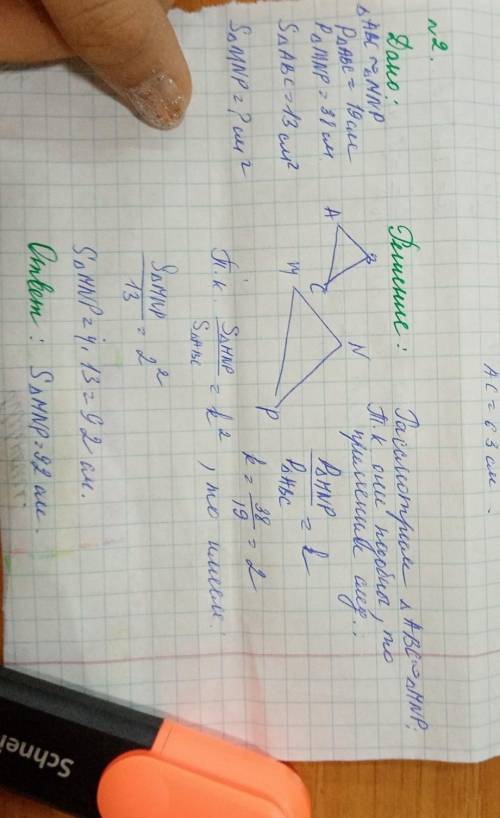 AC = 63 см.
№2.
Дано:
△ABC ~ △MNP
P△ABC = 19 см
P△MNP = 38 см
S△ABC = 13 см²
S△MNP = ? см²
Решение:
A
B
C
M
N
P
Рассмотрим △ABC ~ △MNP:
Т.к они подобны, то
применив след.:
P△MNP / P△ABC = k
k = 38/19 = 2
Т.к. S△MNP / S△ABC = k², то имеем:
S△MNP / 13 = 2²
S△MNP = 4 · 13 = 92 см.
Ответ: S△MNP = 92 см.
Schnei